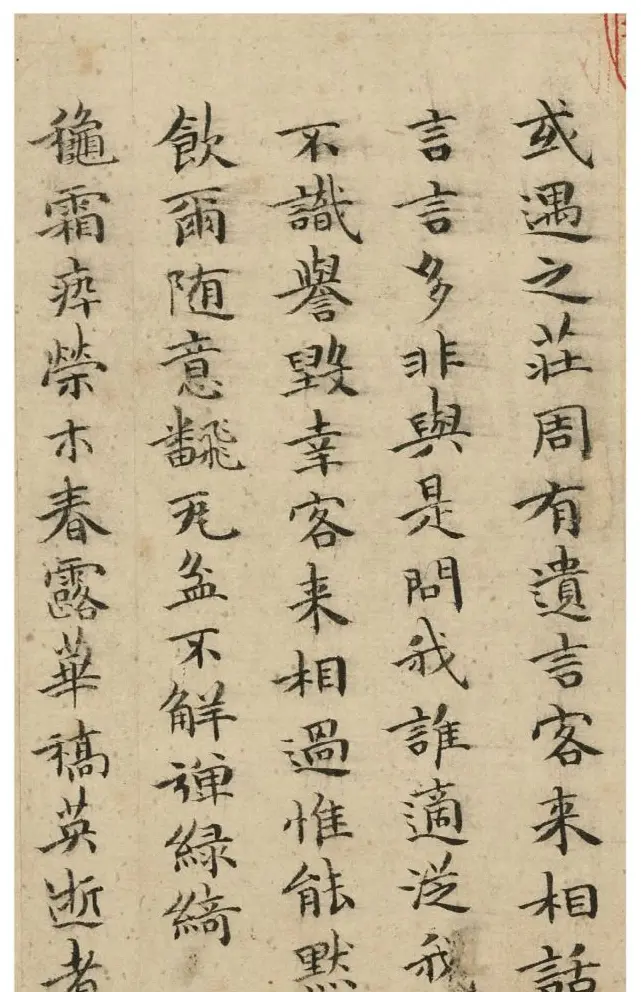 或遇之莊周有遺言客来相話
言言多非與是問我誰適従我
不識譽毀幸客来相過惟能默
飲爾随意飜瓦盆不解弾緑綺
穐霜瘁榮木春露華稿英逝者